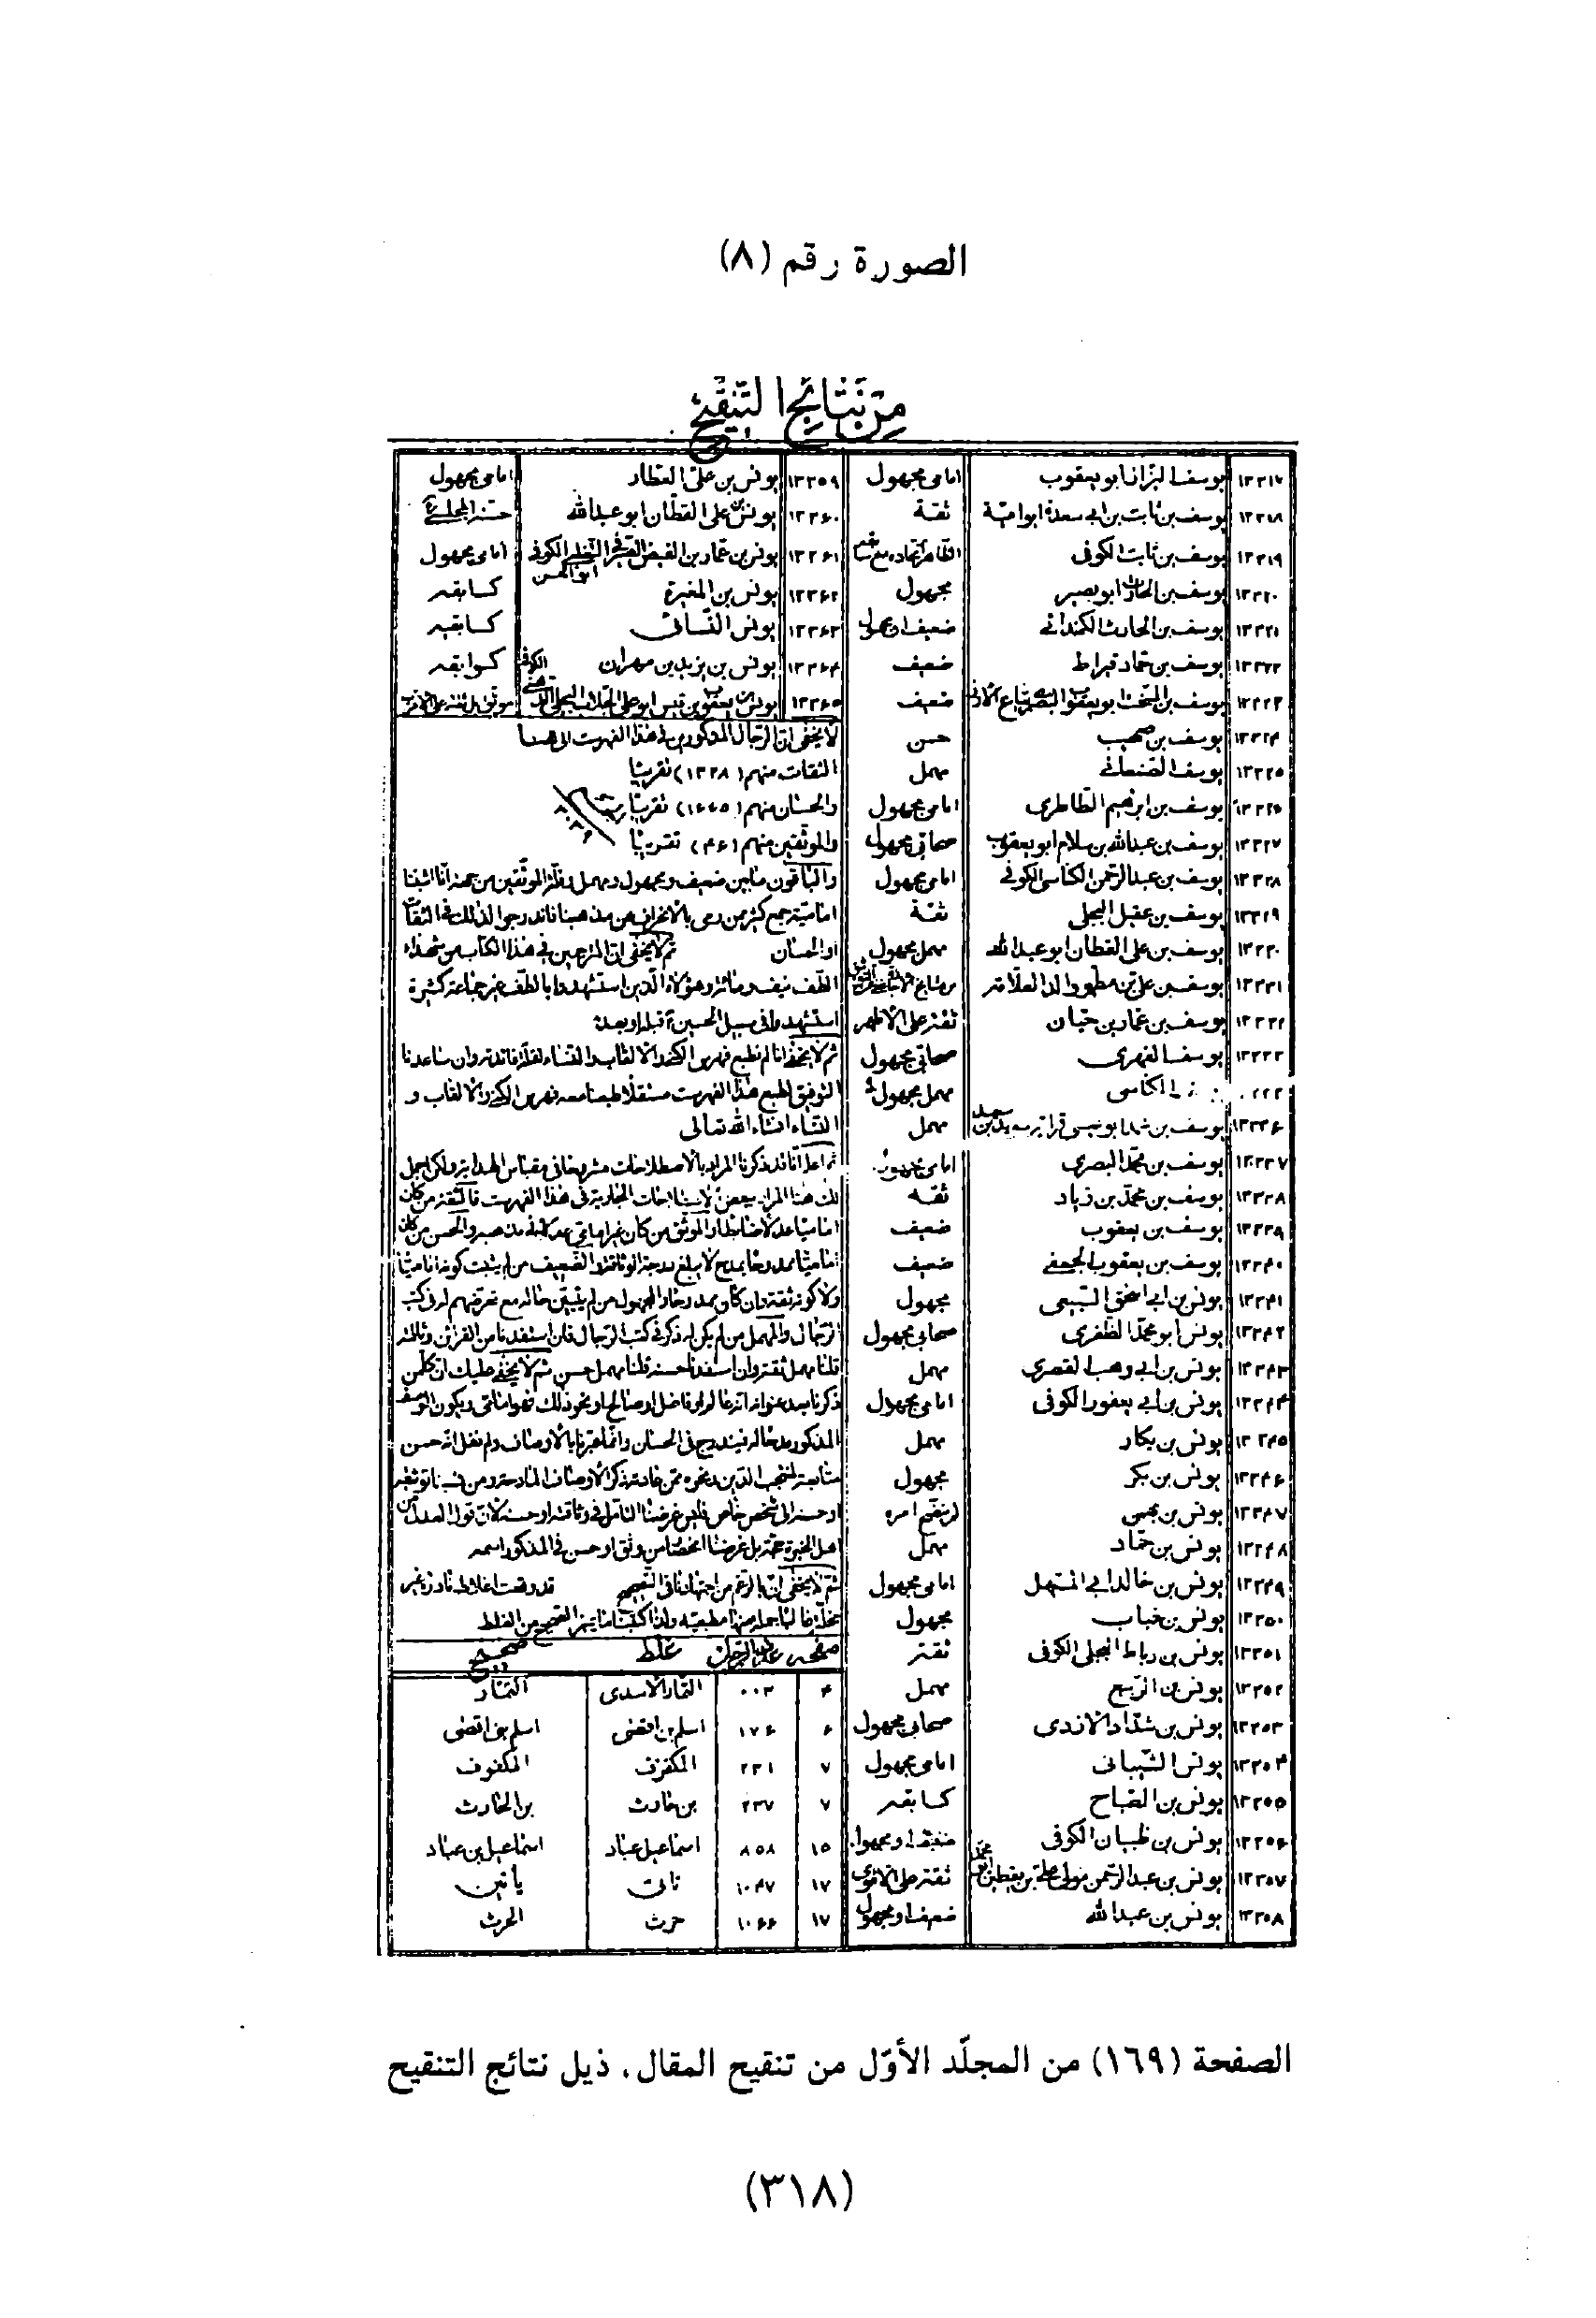 الصورة رقم (٨)
من نتائج التنقيح
١٣٣١٧ يوسف البزاز ابو يعقوب امامى مجهول
١٣٣١٨ يوسف بن ثابت بن ابي سعدة ابو امية ثقة
١٣٣١٩ يوسف بن ثابت الكوفى
١٣٣٢٠ يوسف بن الحارث ابو بصير مجهول
١٣٣٢١ يوسف بن الحارث الكندانى ضعيف او مجهول
١٣٣٢٢ يوسف بن حماد قيراط ضعيف
١٣٣٢٣ يوسف بن السخت ابو يعقوب البصرى ضعيف
١٣٣٢٤ يوسف بن صهيب حسن
١٣٣٢٥ يوسف الصنعانى مهمل
١٣٣٢٦ يوسف بن ابرهيم الطاطرى امامى مجهول
١٣٣٢٧ يوسف بن عبدالله بن سلام ابو يعقوب صحابي مجهول
١٣٣٢٨ يوسف بن عبدالرحمن الكناسى الكوفى امامى مجهول
١٣٣٢٩ يوسف بن عقيل البجلى ثقة
١٣٣٣٠ يوسف بن على القطان ابو عبدالله مهمل مجهول
١٣٣٣١ يوسف بن على بن مطهر والد العلامة
١٣٣٣٢ يوسف بن عمار بن حيان ثقة على الاظهر
١٣٣٣٣ يوسف الفهرى صحابي مجهول
الكناسى مهمل مجهول
١٣٣٣٦ يوسف بن مهمل
١٣٣٣٧ يوسف بن محمد البصرى امامى مجهول
١٣٣٣٨ يوسف بن محمد بن زياد ثقه
١٣٣٣٩ يوسف بن يعقوب ضعيف
١٣٣٤٠ يوسف بن يعقوب الجعفى ضعيف
١٣٣٤١ يونس بن ابي اسحق السبيعى مجهول
١٣٣٤٢ يونس ابو محمد الظفرى صحابي مجهول
١٣٣٤٣ يونس بن ابي وهب القصرى مهمل
١٣٣٤٤ يونس بن ابي يعفور الكوفى امامى مجهول
١٣٣٤٥ يونس بن بكار مهمل
١٣٣٤٦ يونس بن بكر مجهول
١٣٣٤٧ يونس بن بهمن
١٣٣٤٨ يونس بن حماد مهمل
١٣٣٤٩ يونس بن خالد ابي المنهل امامى مجهول
١٣٣٥٠ يونس بن خباب مجهول
١٣٣٥١ يونس بن رباط البجلى الكوفى ثقة
١٣٣٥٢ يونس بن الربيع مهمل
١٣٣٥٣ يونس بن شداد الازدى صحابي مجهول
١٣٣٥٤ يونس الشيبانى امامى مجهول
١٣٣٥٥ يونس بن الصباح كسابقه
١٣٣٥٦ يونس بن ظبيان الكوفى ضعيف او مجهول
١٣٣٥٧ يونس بن عبدالرحمن مولى على بن يقطين ثقة على الاقوى
١٣٣٥٨ يونس بن عبدالله ضعيف او مجهول
١٣٣٥٩ يونس بن على العطار امامى مجهول
١٣٣٦٠ يونس بن على القطان ابو عبدالله
١٣٣٦١ يونس بن عمار بن الفيض الكوفى ابو الحسن امامى مجهول
١٣٣٦٢ يونس بن المغيرة كسابقه
١٣٣٦٣ يونس النسائى كسابقيه
١٣٣٦٤ يونس بن يزيد بن مهران كسوابقه
١٣٣٦٥ يونس بن يعقوب بن قيس ابو على الجلاب البجلى
لا يخفى ان الرجال المذكورين فى هذا الفهرست الى هنا
الثقات منهم (١٣٢٨) تقريبا
والحسان منهم (١٦٦٥) تقريبا
والموثقين منهم (٤٦) تقريبا
والباقون ما بين ضعيف ومجهول ومهمل وقلة الموثقين من جهة انا اثبتنا
امامية جمع كثير ممن رمى بالانحراف عن مذهبنا فاندرجوا لذلك فى الثقات
او الحسان ثم لا يخفى ان المترجمين فى هذا الكتاب من شهداء
الطف نيف ومائة وهؤلاء الذين استشهدوا بالطف غير جماعة كثيرة
استشهدوا فى سبيل الحسين ع قبله او بعده
ثم لا يخفى انا لم نطبع فهرس الكنى والالقاب والنساء لقلة فائدته وان ساعدنا
التوفيق لطبع هذا الفهرست مستقلا طبعنا معه فهرس الكنى والالقاب و
النساء انشاء الله تعالى
ثم اعلم انا قد ذكرنا المراد بالاصطلاحات مشروحا فى مقباس الهداية ولكن اجمل
لك هنا المراد ببعض الاصطلاحات الجارية فى هذا الفهرست فالثقة من كان
اماميا عدلا ضابطا والموثق من كان غير امامى والحسن من كان
اماميا ممدوحا بمدح لا يبلغ درجة الوثاقة والضعيف من لم يثبت كونه اماميا
ولا كونه ثقة وان كان ممدوحا والمجهول من لم يتبين حاله مع تعرضهم له فى كتب
الرجال والمهمل من لم يكن له ذكر فى كتب الرجال فان استفدنا من القرائن وثاقته
قلنا مهمل ثقة وان استفدنا حسنه قلنا مهمل حسن ثم لا يخفى عليك ان كل من
ذكرنا بعد عنوانه انه عالم او فاضل او صالح او نحو ذلك فهو امامى ويكون الوصف
المذكور مدحا له فيندرج فى الحسان وانما عبرنا بالاوصاف ولم نقل انه حسن
متابعة لمنتجب الدين ونحوه ممن عادته ذكر الاوصاف المادحة ومن نسبنا توثيقه
او حسنه الى شخص خاص فليس غرضنا التامل فى وثاقته او حسنه لان قول العدل من
اهل الخبرة حجة بل غرضنا انحصار من وثق او حسن فى المذكور اسمه
ثم لا يخفى ان بالرغم من اجتهادنا فى التصحيح قد وقعت اغلاط نادرة غير
صفحه عدد الرجال غلط صحيح
٤ ٠٠٣ التمار الاسدى التمار
٦ ١٧٦ اسلم بن اقصى اسلم بن افصى
٧ ٢٢١ المكفزف المكفوف
٧ ٢٣٧ بن حارث بن الحارث
١٥ ٨٥٨ اسماعيل عباد اسماعيل بن عباد
١٧ ١٠٤٧
١٧ ١٠٦٦ حرث الحرث
الصفحة (١٦٩) من المجلّد الأوّل من تنقيح المقال . ذيل نتائج التنقيح
(٣١٨)